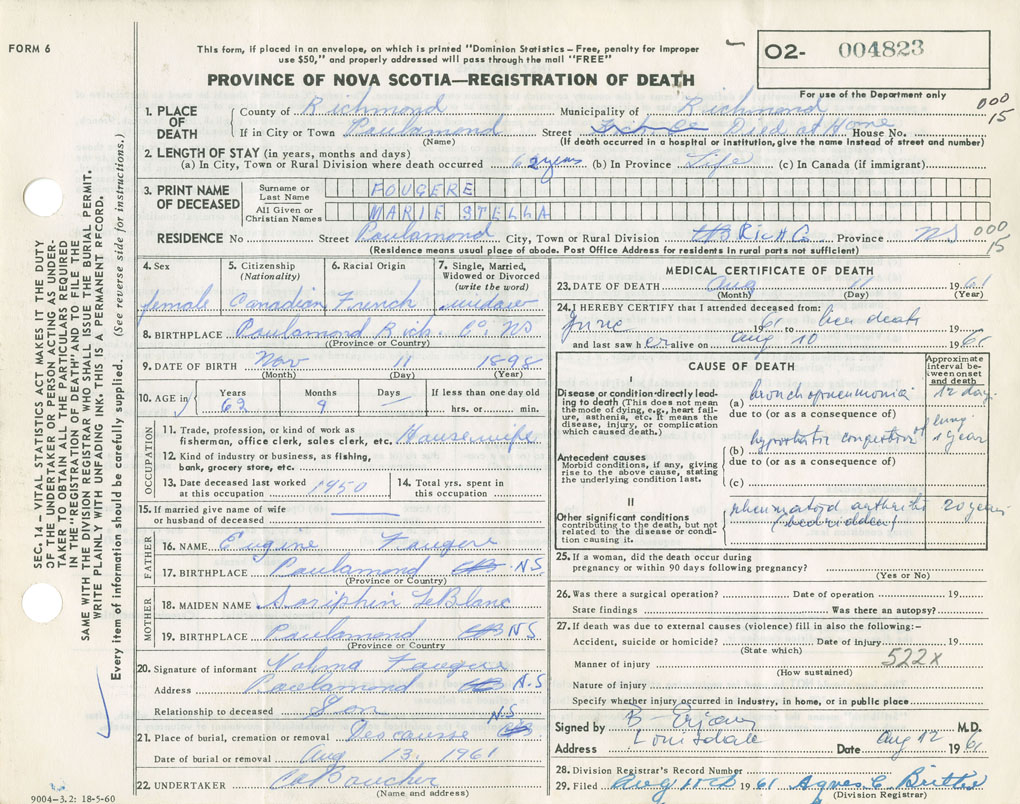 FORM 6
This form, if placed in an envelope, on which is printed "Dominion Statistics – Free, penalty for improper
use $50," and properly addressed will pass through the mail "FREE"
PROVINCE OF NOVA SCOTIA—REGISTRATION OF DEATH
O2- 004823
For use of the Department only
000
15
1. PLACE OF DEATH
County of Richmond Municipality of Richmond
If in City or Town Poulamond Street Died at Home House No.
(Name) (If death occurred in a hospital or institution, give the name instead of street and number)
2. LENGTH OF STAY (in years, months and days)
(a) In City, Town or Rural Division where death occurred 62 years (b) In Province Life (c) In Canada (if immigrant)
3. PRINT NAME OF DECEASED
Surname or Last Name FOUGERE
All Given or Christian Names MARIE STELLA
RESIDENCE No Street Poulamond City, Town or Rural Division Rich Co. Province NS
000
15
(Residence means usual place of abode. Post Office Address for residents in rural parts not sufficient)
4. Sex
female
5. Citizenship
(Nationality)
Canadian
6. Racial Origin
French
7. Single, Married, Widowed or Divorced
(write the word)
widow
8. BIRTHPLACE Poulamond Rich. Co. NS
(Province or Country)
9. DATE OF BIRTH Nov 11 1898
(Month) (Day) (Year)
10. AGE in Years 62 Months 9 Days — If less than one day old
hrs. or min.
OCCUPATION
11. Trade, profession, or kind of work as
fisherman, office clerk, sales clerk, etc. Housewife
12. Kind of industry or business, as fishing,
bank, grocery store, etc.
13. Date deceased last worked
at this occupation 1950
14. Total yrs. spent in
this occupation
15. If married give name of wife
or husband of deceased
FATHER
16. NAME Eugine Fougere
17. BIRTHPLACE Poulamond NS
(Province or Country)
MOTHER
18. MAIDEN NAME Sariphin LeBlanc
19. BIRTHPLACE Poulamond NS
(Province or Country
20. Signature of informant Fougere
Address Poulamond N.S
Relationship to deceased Son
N.S
21. Place of burial, cremation or removal Descousse
Date of burial or removal Aug 13, 1961
22. UNDERTAKER Boucher
(Name and address)
9004-3.2: 18-5-60
MEDICAL CERTIFICATE OF DEATH
23. DATE OF DEATH Aug 11 1961
(Month) (Day) (Year)
24. I HEREBY CERTIFY that I attended deceased from:
June 1961 to her death 19
and last saw her alive on Aug 10 1961
CAUSE OF DEATH
Approximate interval between onset and death
I
Disease or condition directly leading to death (This does not mean the mode of dying, e.g., heart failure, asthenia, etc. It means the disease, injury, or complication which caused death.)
(a) bronchopneumonia 12 day
due to (or as a consequence of)
Antecedent causes
Morbid conditions, if any, giving rise to the above cause, stating the underlying condition last.
(b) hypostatic congestion of lung 1 year
due to (or as a consequence of)
(c)
II
Other significant conditions
contributing to the death, but not related to the disease or condition causing it.
rheumatoid arthritis 20 years
(bedridden)
25. If a woman, did the death occur during
pregnancy or within 90 days following pregnancy?
(Yes or No)
26. Was there a surgical operation? Date of operation 19
State findings Was there an autopsy?
27. If death was due to external causes (violence) fill in also the following:-
Accident, suicide or homicide? Date of injury 19
(State which)
522X
Manner of injury
(How sustained)
Nature of injury
Specify whether injury occurred in industry, in home, or in public place
Signed by B M.D.
Address Louisdale Date Aug 12 1961
28. Division Registrar's Record Number
29. Filed Aug 1961 Agnes C.
(Division Registrar)
SEC. 14 – VITAL STATISTICS ACT MAKES IT THE DUTY
OF THE UNDERTAKER OR PERSON ACTING AS UNDER-
TAKER TO OBTAIN ALL THE PARTICULARS REQUIRED
IN THE "REGISTRATION OF DEATH" AND TO FILE THE
SAME WITH THE DIVISION REGISTRAR WHO SHALL ISSUE THE BURIAL PERMIT.
WRITE PLAINLY WITH UNFADING INK. THIS IS A PERMANENT RECORD.
Every item of information should be carefully supplied. (See reverse side for instructions.)